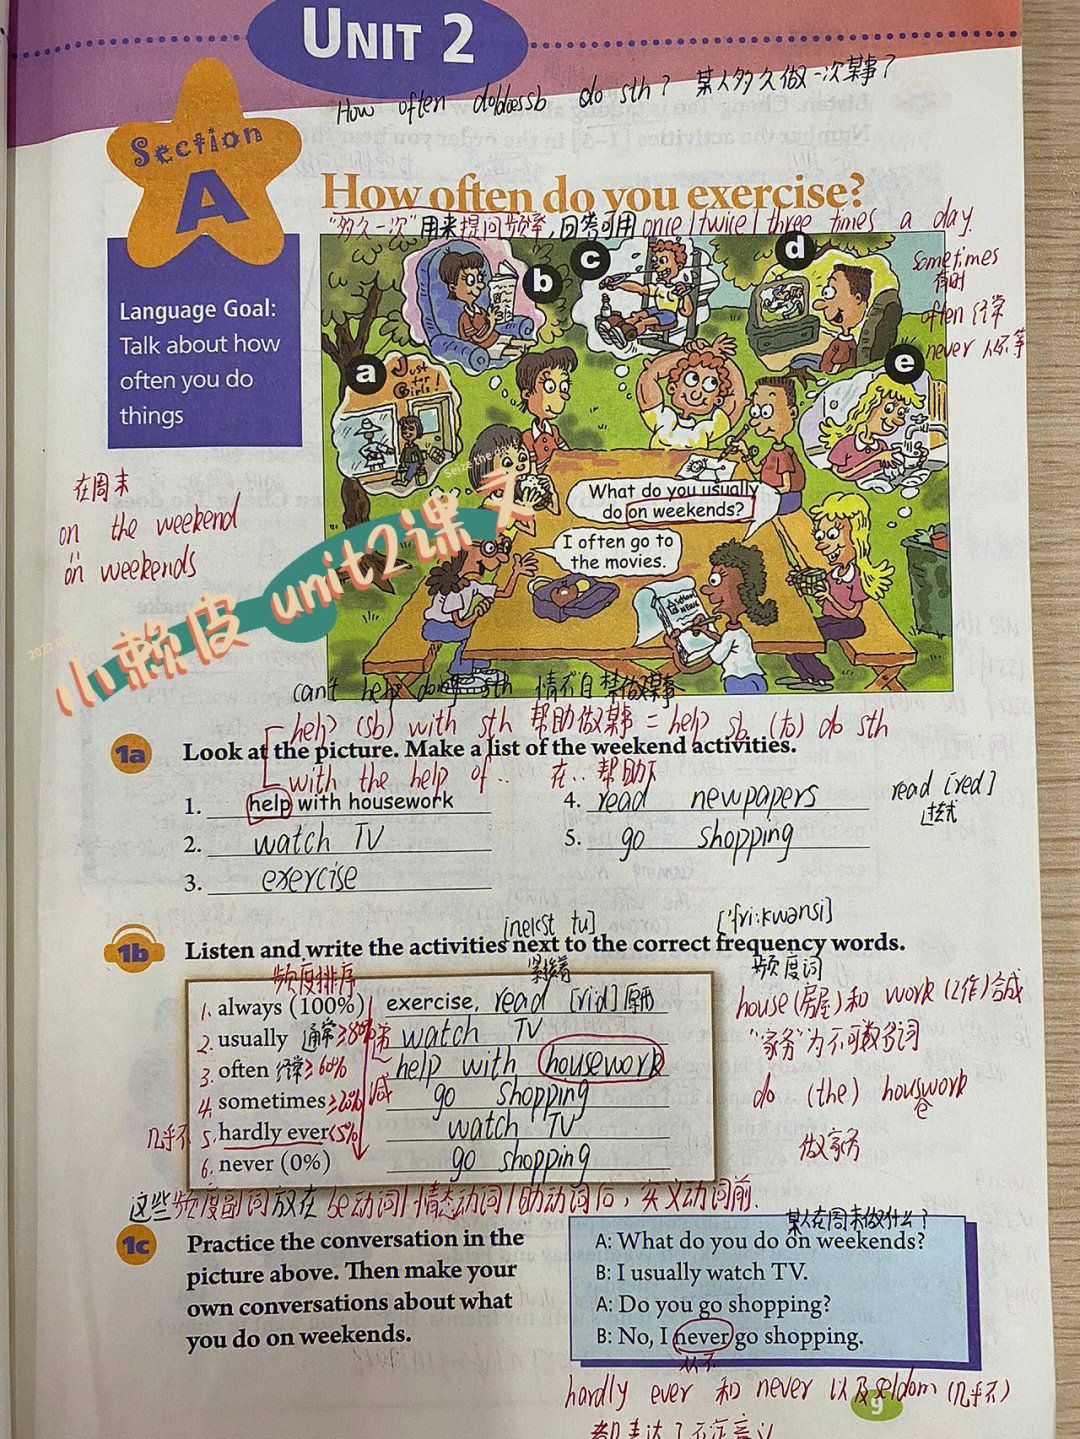 UNIT 2
How often do/does sb do sth? 某人多久做一次某事?
Section
A
How often do you exercise?
"多久一次"用来提问频率,回答可用once/twice/three times a day.
sometimes
有时
often 经常
never 从不 等
Language Goal:
Talk about how
often you do
things
a
b
c
d
e
Just
for
Girls!
What do you usually
do on weekends?
I often go to
the movies.
School
NEWS
在周末
on the weekend
on weekends
Seize the day
小赖皮 unit2课文
2022
can't help doing sth 情不自禁做某事
help (sb) with sth 帮助做某事 = help sb (to) do sth
1a Look at the picture. Make a list of the weekend activities.
with the help of .. 在..帮助下
1. help with housework
2. watch TV
3. exercise
4. read newpapers
5. go shopping
read [red]
过去式
[nekst tu] ['fri:kwənsi]
1b Listen and write the activities next to the correct frequency words.
频度排序 紧接着 频度词
1. always (100%) exercise, read [rid] 原形
2. usually 通常≥80% watch TV
3. often 经常≥60% help with housework
4. sometimes ≥20% go shopping
5. hardly ever <5% watch TV
6. never (0%) go shopping
递减
几乎不
house(房屋)和 work (工作)合成
"家务"为不可数名词
do (the) houswork
做家务
这些频度副词放在be动词/情态动词/助动词后,实义动词前.
1c Practice the conversation in the
picture above. Then make your
own conversations about what
you do on weekends.
某人在周末做什么?
A: What do you do on weekends?
B: I usually watch TV.
A: Do you go shopping?
B: No, I never go shopping.
从不
hardly ever 和 never 以及 seldom (几乎不)
9
都表达了否定意义